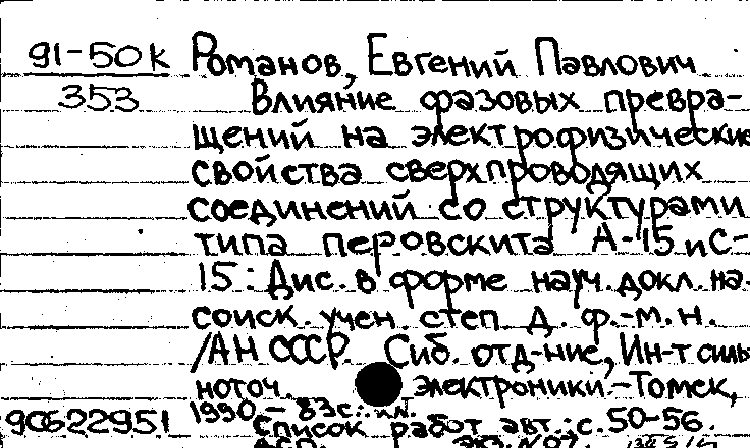 91-50к Романов, Евгений Павлович
353 Влияние фазовых превра-
щений на электрофизические
свойства сверхпроводящих
соединений со структурами
типа перовскита А-15 и С-
15: Дис. в форме науч. докл. на
соиск. учен. степ д. ф.-м.н.
/АН СССР. Сиб. отд-ние, Ин-т силь
ноточ. электроники.-Томск,
1990.- 83с.: ил.
90622951 Список работ авт.: с. 50-56.